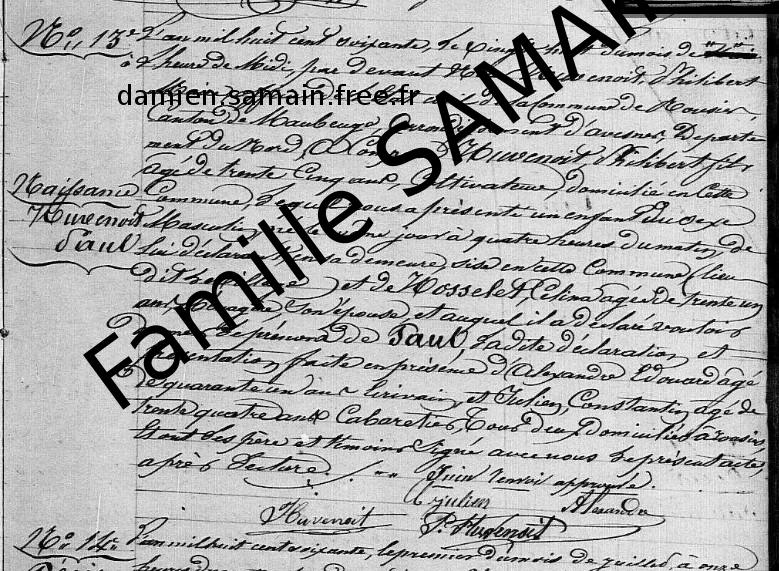 No. 13e L'an mil huit cent soixante, le cinq du mois de
à heure de Midi, par devant Nous Huvenoit, Philibert
damien.samain.free.fr
de la commune de Rousies,
Canton de Maubeuge, arrondissement d'avesnes, Departe-
ment du Nord, a Huvenoit Philibert fils
Naissance agé de trente cinq ans, Cultivateur domicilié en cette
Commune, lequel nous a présenté un enfant du sexe
Huvenoit Masculin, né le jour à quatre heures du matin, de
Paul lui déclarant en sa demeure, sise en cette Commune (lieu
dit ) et de Hosselet, Célina agée de trente un
ans, Ménagère son épouse et auquel il a déclaré vouloir
donner le prénom de Paul. La dite déclaration et
présentation faite en présence d'Alexandre Edouard âgé
de quarante un ans Ecrivain, et Julien, Constantin, agé de
trente quatre ans Cabaretier, Tous deux Domiciliés à rousies,
Et ont les père et témoins signé avec nous le présent acte,
après Lecture. Juin renvoi approuvé.
Huvenoit julien Alexandre
P. Huvenoit
No. 14e L'an mil huit cent soixante, le premier du mois de juillet, à onze
Famille SAMAIN